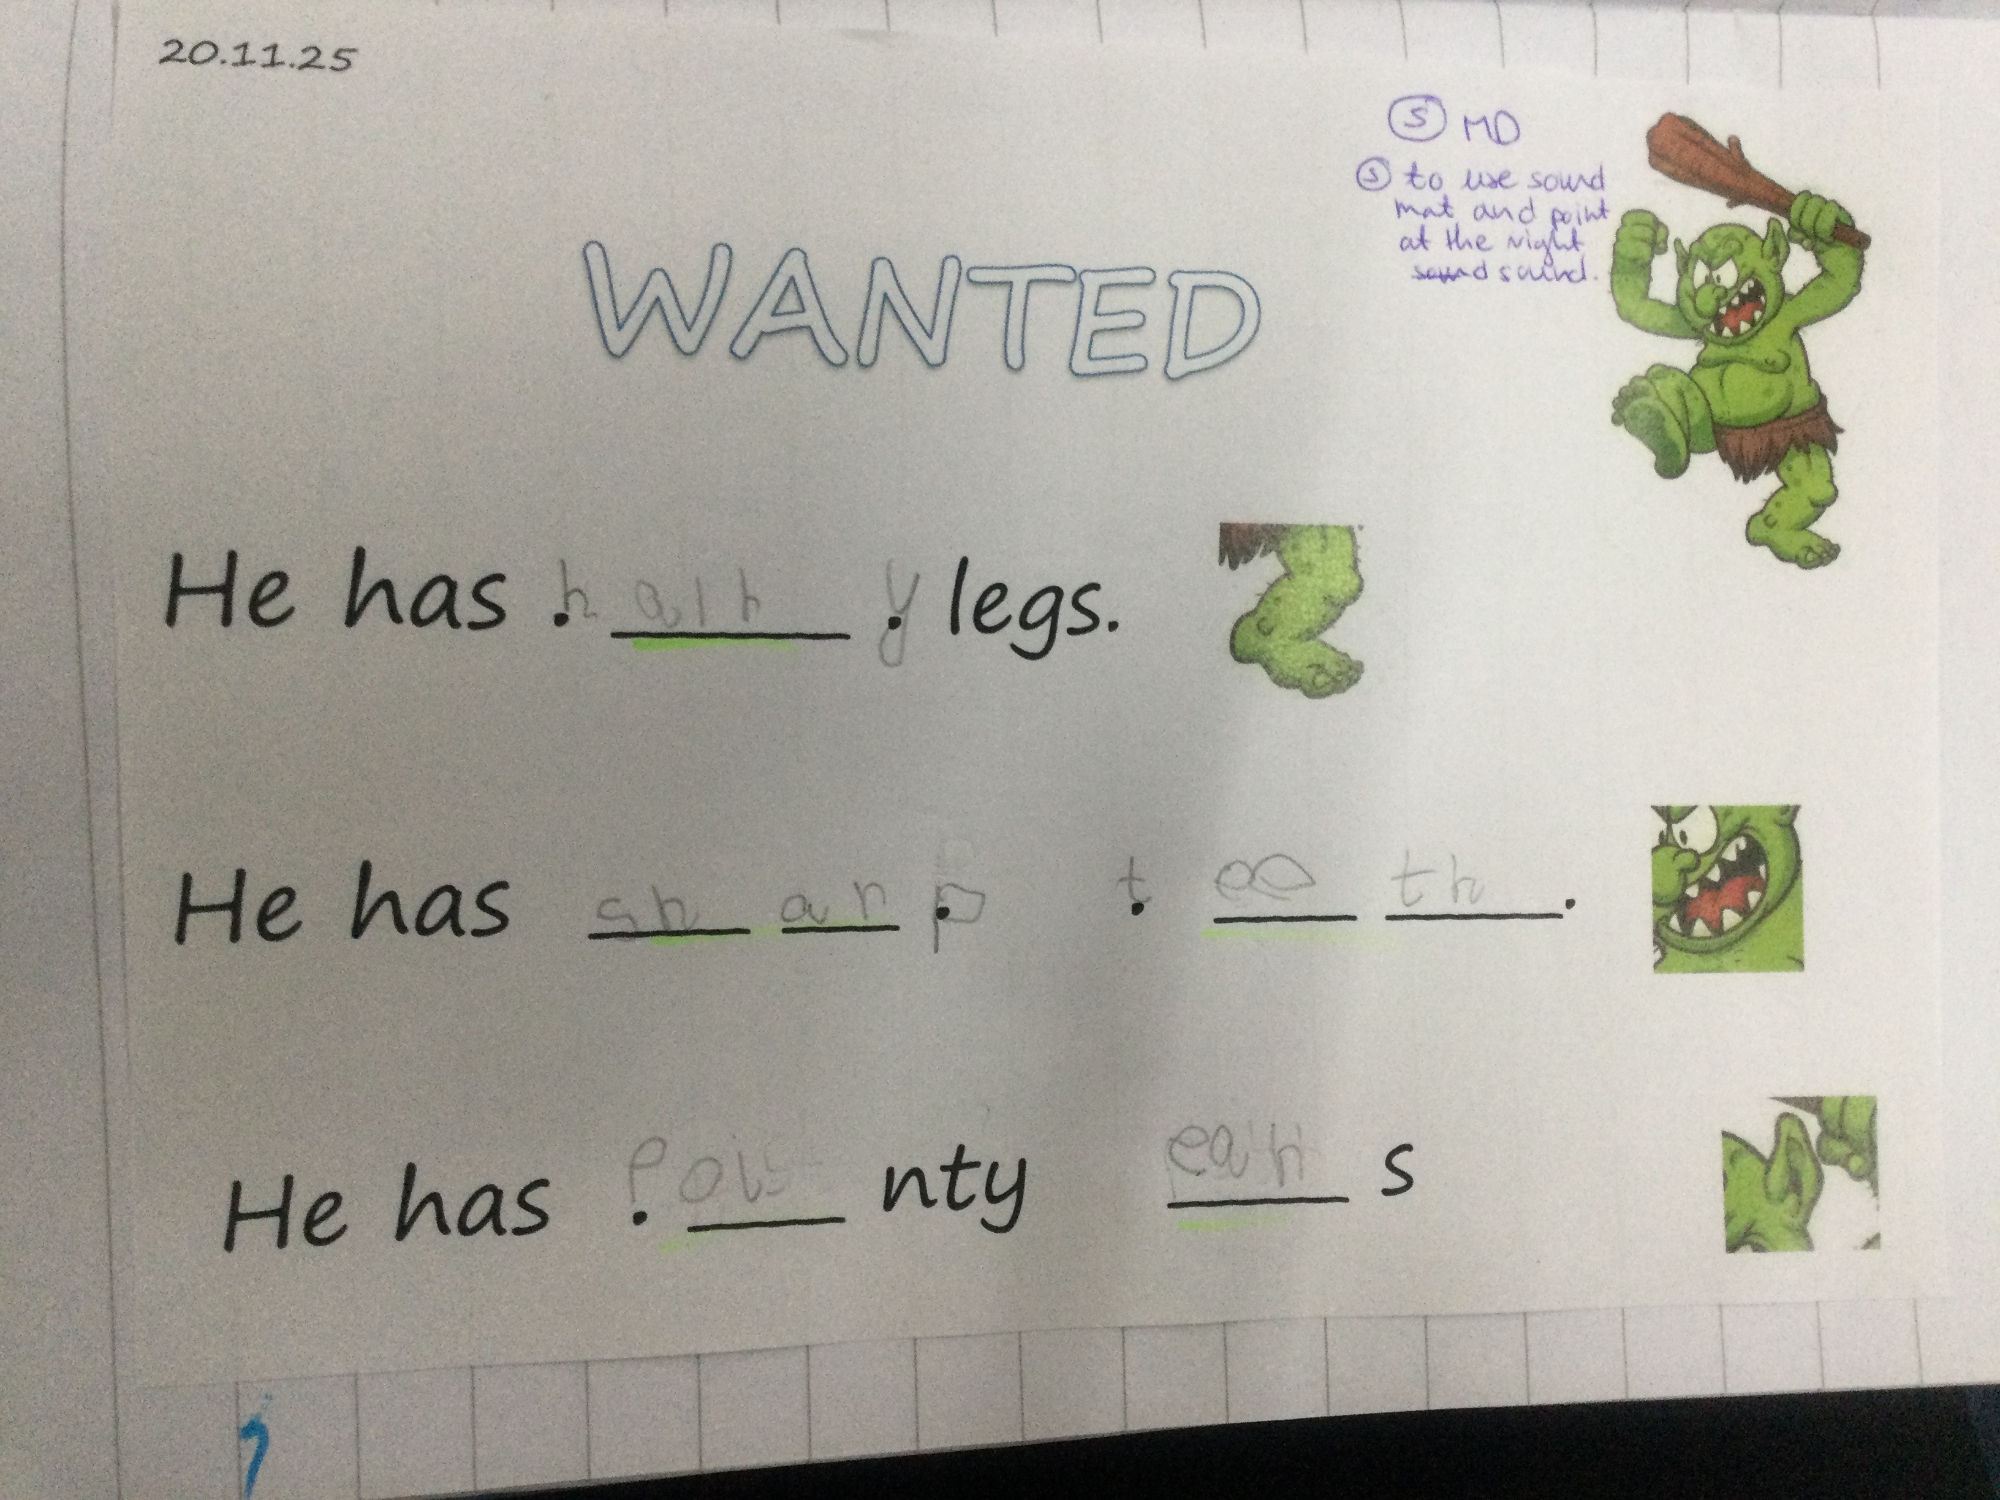 20.11.25
S MD
S to use sound
mat and point
at the right
sound sound.
WANTED
He has hairy legs.
He has sharp teeth.
He has nty ears